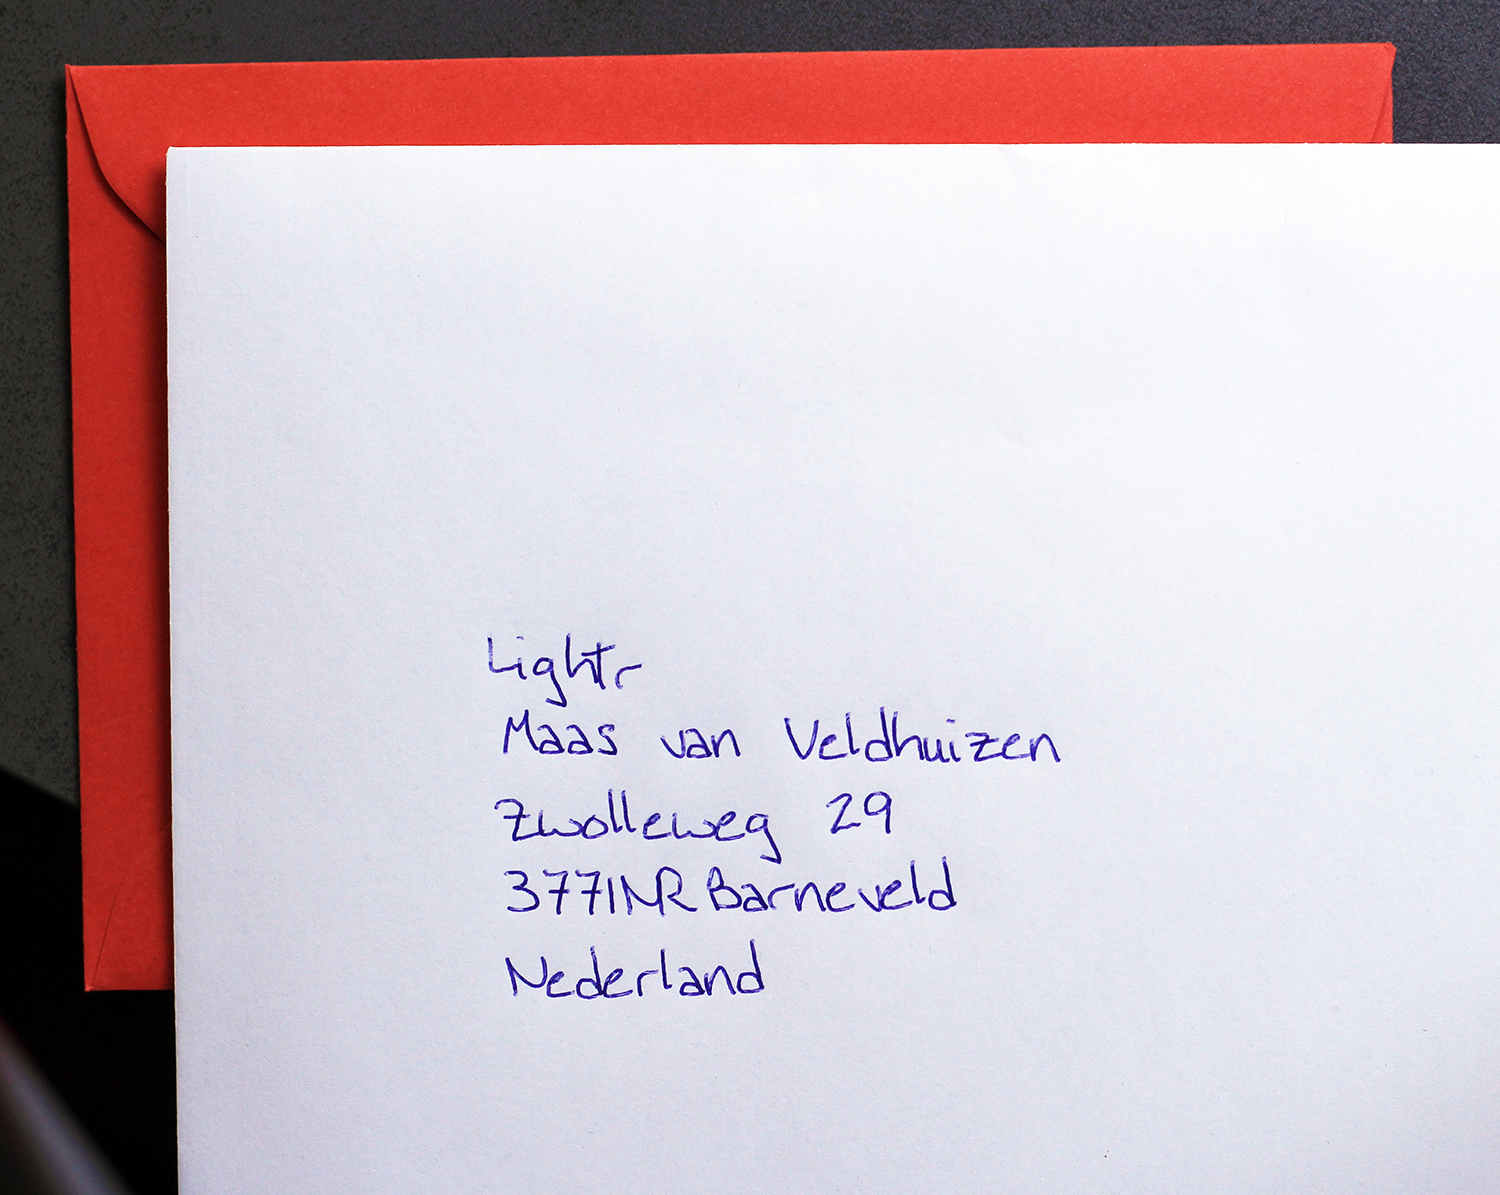 Lightr
Maas van Veldhuizen
Zwolleweg 29
3771NR Barneveld
Nederland